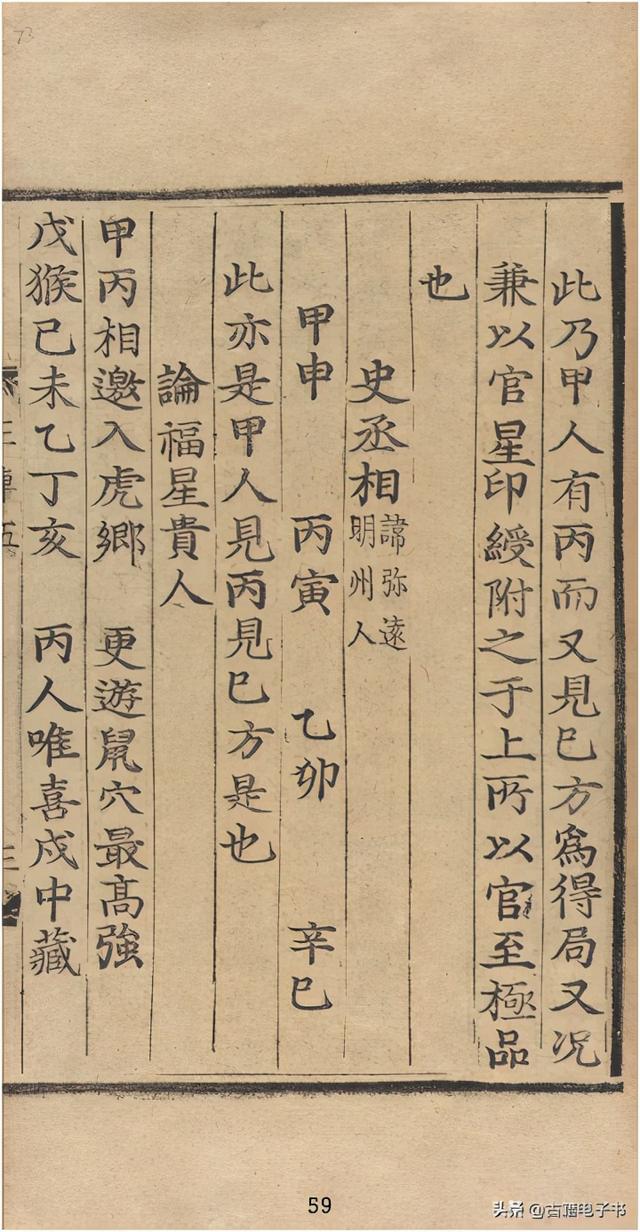 此乃甲人有丙而又見巳方為得局又况
兼以官星印綬附之于上所以官至極品
也
史丞相諱弥遠明州人
甲申 丙寅 乙卯 辛巳
此亦是甲人見丙見巳方是也
論福星貴人
甲丙相邀入虎鄉 更遊鼠穴最高強
戊猴己未乙丁亥 丙人唯喜戍中藏
59
头条 @古籍电子书